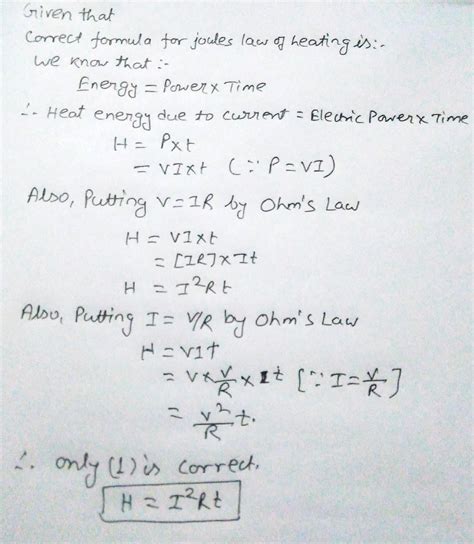 Given that
Correct formula for joules law of heating is:-
We know that :-
Energy = Power x Time
∴ Heat energy due to current = Electric Power x Time
H = Pxt
= VIxt (∵ P = VI)
Also, Putting V = IR by Ohm's Law
H = VIxt
= [IR]x It
H = I²Rt
Also, Putting I = V/R by Ohm's Law
H = VIt
= V x V/R x t [∵ I = V/R]
= V²/R t.
∴ only (1) is correct.
H = I²Rt